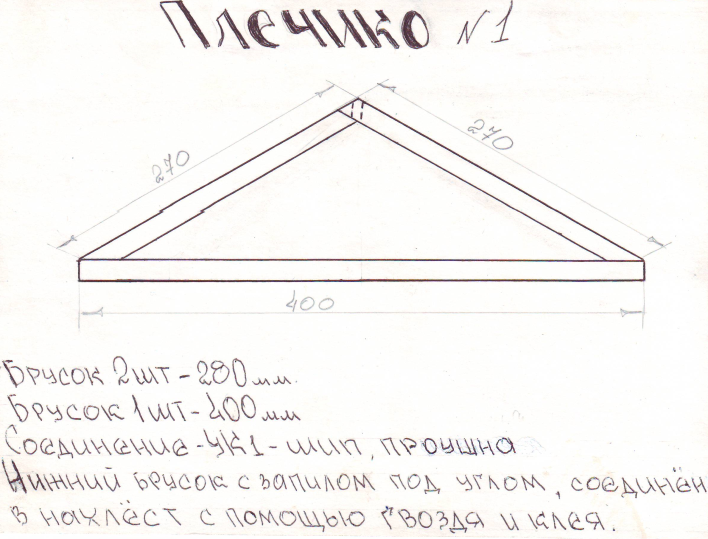 Плечико №1
270
270
400
Брусок 2шт-280мм.
Брусок 1шт-400мм
Соединение-УК1-шип, проушна
Нижний брусок с запилом под углом, соединён
в нахлёст с помощью гвоздя и клея.